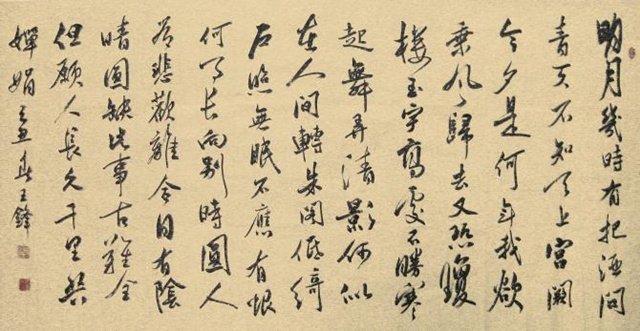 明月幾時有把酒問
青天不知天上宮闕
今夕是何年我欲
乘風歸去又恐瓊
樓玉宇高處不勝寒
起舞弄清影何似
在人間轉朱閣低綺
戶照無眠不應有恨
何事長向別時圓人
有悲歡離合月有陰
晴圓缺此事古難全
但願人長久千里共
嬋娟 王鋒